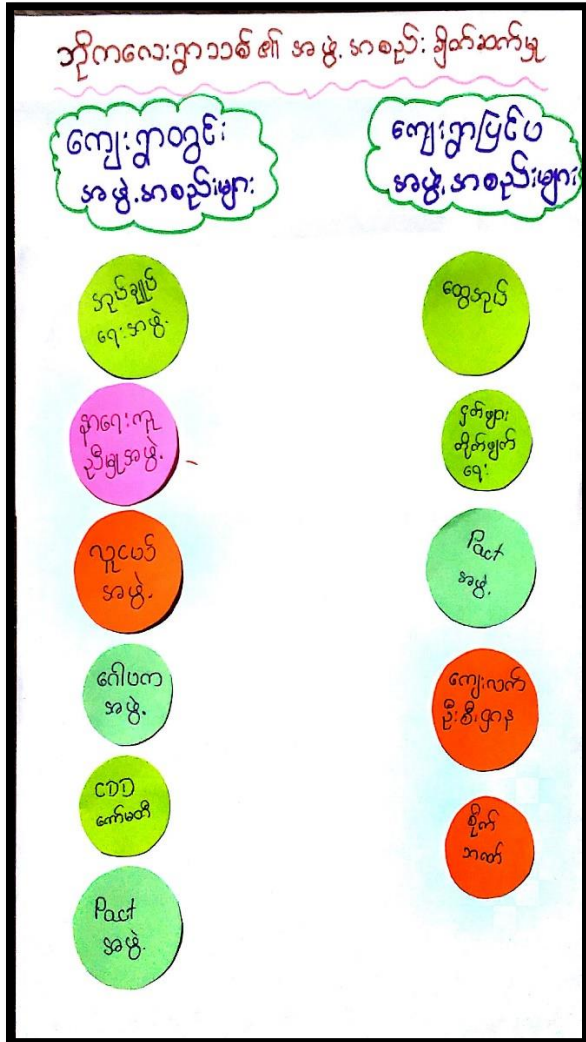 ဘိုကလေးရွာသစ်၏ အဖွဲ့အစည်း ချိတ်ဆက်မှု
ကျေးရွာတွင်း
အဖွဲ့အစည်းများ
အုပ်ချုပ်
ရေးအဖွဲ့
နာရေးကူ
ညီမှုအဖွဲ့
လူငယ်
အဖွဲ့
ဂေါပက
အဖွဲ့
CDD
ကော်မတီ
Pact
အဖွဲ့
ကျေးရွာပြင်ပ
အဖွဲ့အစည်းများ
ထွေအုပ်
ငှက်ဖျား
တိုက်ဖျက်
ရေး
Pact
အဖွဲ့
ကျေးလက်
ဦးစီးဌာန
စိုက်
ဘဏ်